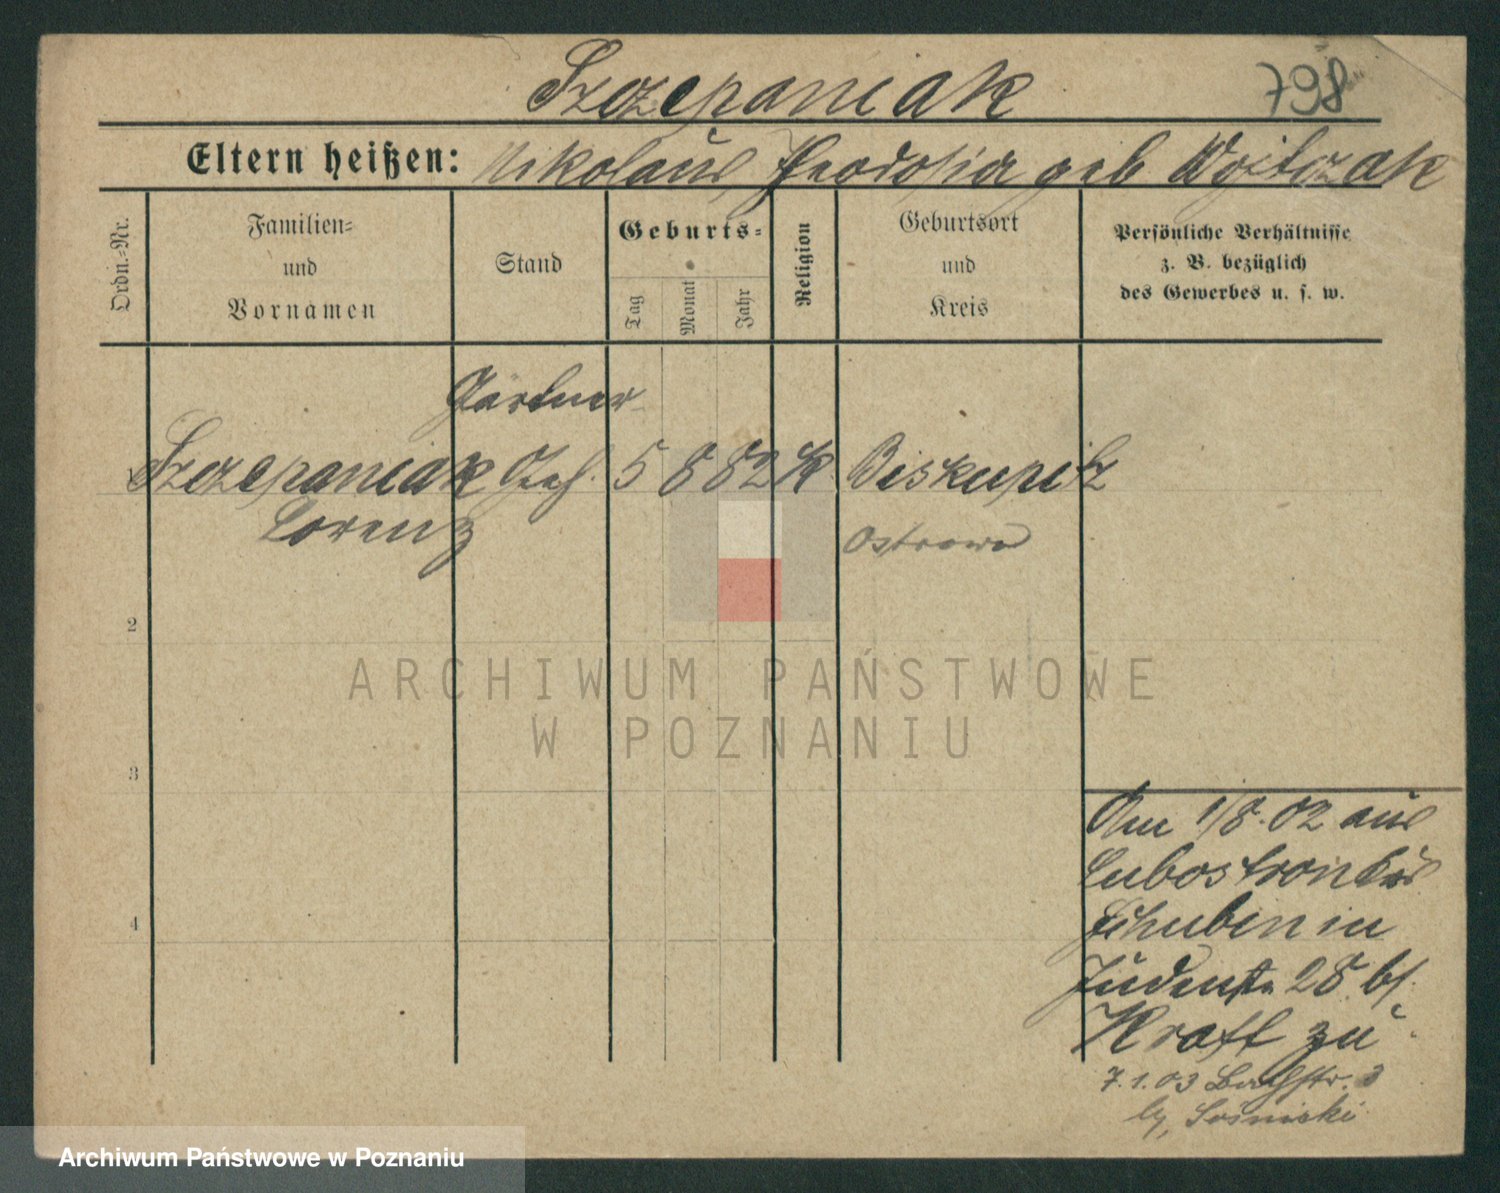 Szczepaniak 798
Eltern heißen: Nikolaus, Theodosia geb Wojtczak
Ordn.-Nr.
Familien-
und
Vornamen
Stand
Geburts-
Tag
Monat
Jahr
Religion
Geburtsort
und
Kreis
Persönliche Verhältnisse
z. B. bezüglich
des Gewerbes u. s. w.
Gärtner
Szczepaniak Geh. 5 8 82 K. Biskupitz
Lorenz
Ostrowo
2
3
4
ARCHIWUM PAŃSTWOWE
W POZNANIU
Am 1/8.02 aus
Lubostron Krs
Schubin in
Judenstr 28 bs.
Kraft zu
7.1.03 Bachstr. 3
Sośnicki
Archiwum Państwowe w Poznaniu